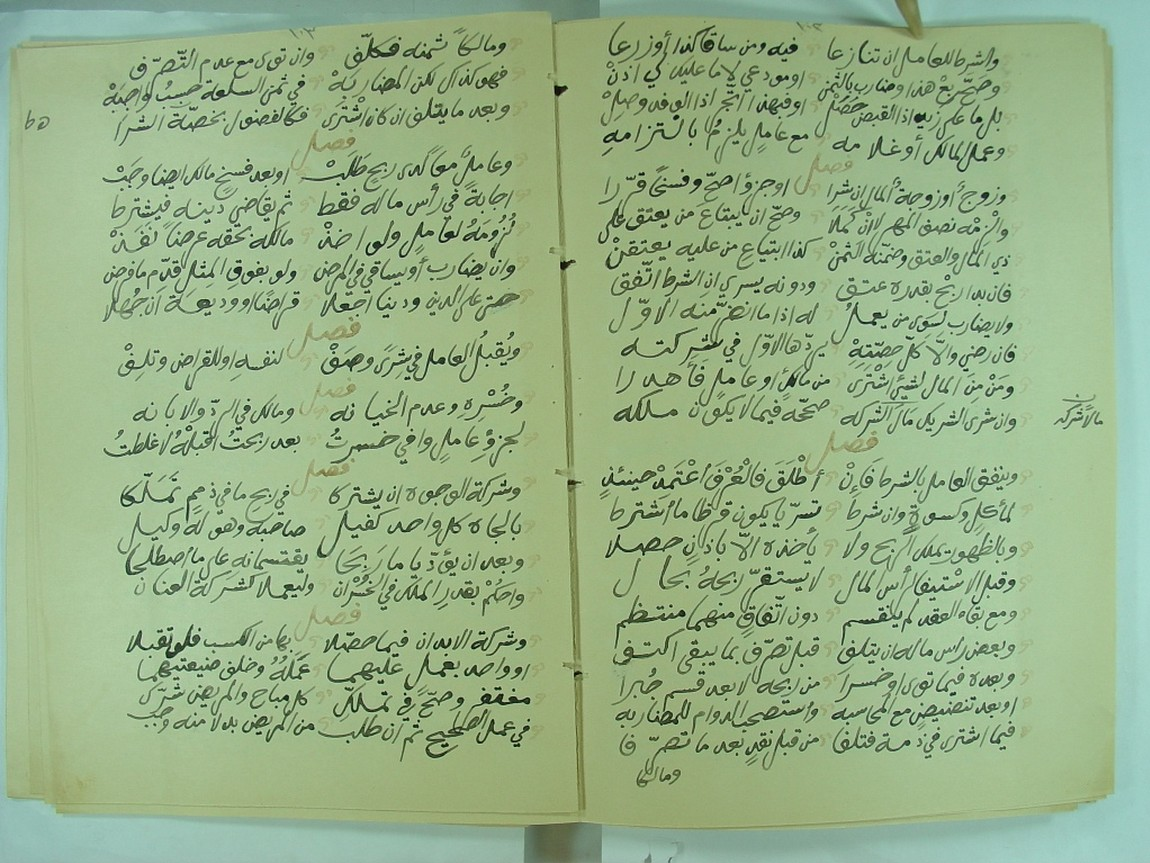 والشرط للعامل ان تنازعا فيه ومن ساقا كذا أو زرعا
وصحّ ربع هذا وضارب بالثمن او مودعي لا ما عليك لي اذن
بل ما على زيد اذا القبض حصل او فبهذا اتّجر اذا الوفد وصل
وعمل المالك أو غلامه مع عامل يلزم بالتزامه
فصل
وزوج أو زوجة المال ان شرا او جزؤا صحّ وفسخًا قرّرا
والزمه نصف المهر لا ان كملا وصحّ ان يبتاع من يعتق على
ذي المال والعتق وضمنه الثمن كذا ابتياع من عليه يعتقن
فان بدا ربح بقدره عتق ودونه يسري ان الشرط اتّفق
ولا يضارب لسوى من يعمل له اذا ما انضرّ منه الاوّل
فان رضي والّا كلّ حصّته يردّها الاوّل في شركته
ومن من المال لشيئ اشترى من مالك أو عامل فأهدرا
وان شرى الشريك مال الشركه صحّحه فيما لا يكون ملكه
مال شركه
فصل
وينفق العامل بالشرط فإن أطلق فالعرف اعتمد حينئذ
لمأكل وكسوة وان شرط تسرّيا يكون قرضا ما اشترط
وبالظهور تملك الربح ولا يأخذه الّا باذن حصلا
وقبل الاستيفا لرأس المال لا يستقرّ ربحه بحال
ومع بقاء العقد لم ينقسم دون اتّفاق منهما منتظم
وبعض راس ماله ان يتلف قبل تصرّف بما يبقى اكتفى
وبعده فيما توى او خسرا من ربحه لا بعد قسم جُبرا
او بعد تنضيض مع المحاسبه واستصحب الدوام للمضاربه
فيما اشترى في ذمة فتلفا من قبل نقد بعد ما تصرّفا
ومالكا
ومالكاً ثمنه فكلّف وان توى مع عدم التّصرّف
فهو كذاك لكن المضاربة في ثمن السلعة حسب واصبة
وبعد ما يتلف ان كان اشترى فكالفضول بخصّة الشرا
فصل
وعامل معًا لدى ربح طلبْ او بعد فسخ مالك ايضا وجبْ
اجابة في رأس ماله فقط ثم يقاضي دينه فيشترط
لزومه لعامل ولو اخذ مالكه بحقه عرضا نفذ
وان يضارب أو يساقي في المرض ولو بفوق المثل قدّم ما فرض
حتى على الدين ودينا اجعلا قراضا او وديعة ان جُهلا
فصل
ويُقبل العامل في شرى وصفْ لنفسه او للقراض وتلفْ
فصل
وخُسره وعدم الخيانه ومالك في الردّ والابانه
لجزؤ عامل وافي خسرتُ بعد ربحت اقبله لا غلطتُ
فصل
وشركة الوجوه ان يشتركا في ربح ما في ذمم تملّكا
بالجاه كل واحد كفيل صاحبه وهو له وكيل
وبعد ان يؤدّيا ما ربحا يقتسمانه على ما اصطلحا
واحكم بقدر الملك في الخسران وليعملا كشركة العنان
فصل
وشركة الابدان فيما حصّلا بها من الكسب فلو تقبلا
او واحد بعمل عليهما عمله وخلف صنيعتيهما
مغتفر وصحّ في تملّك كل مباح والمريض شرّك
في عمل الصحيح ثم ان طلب من المريض بدلا منه وجب